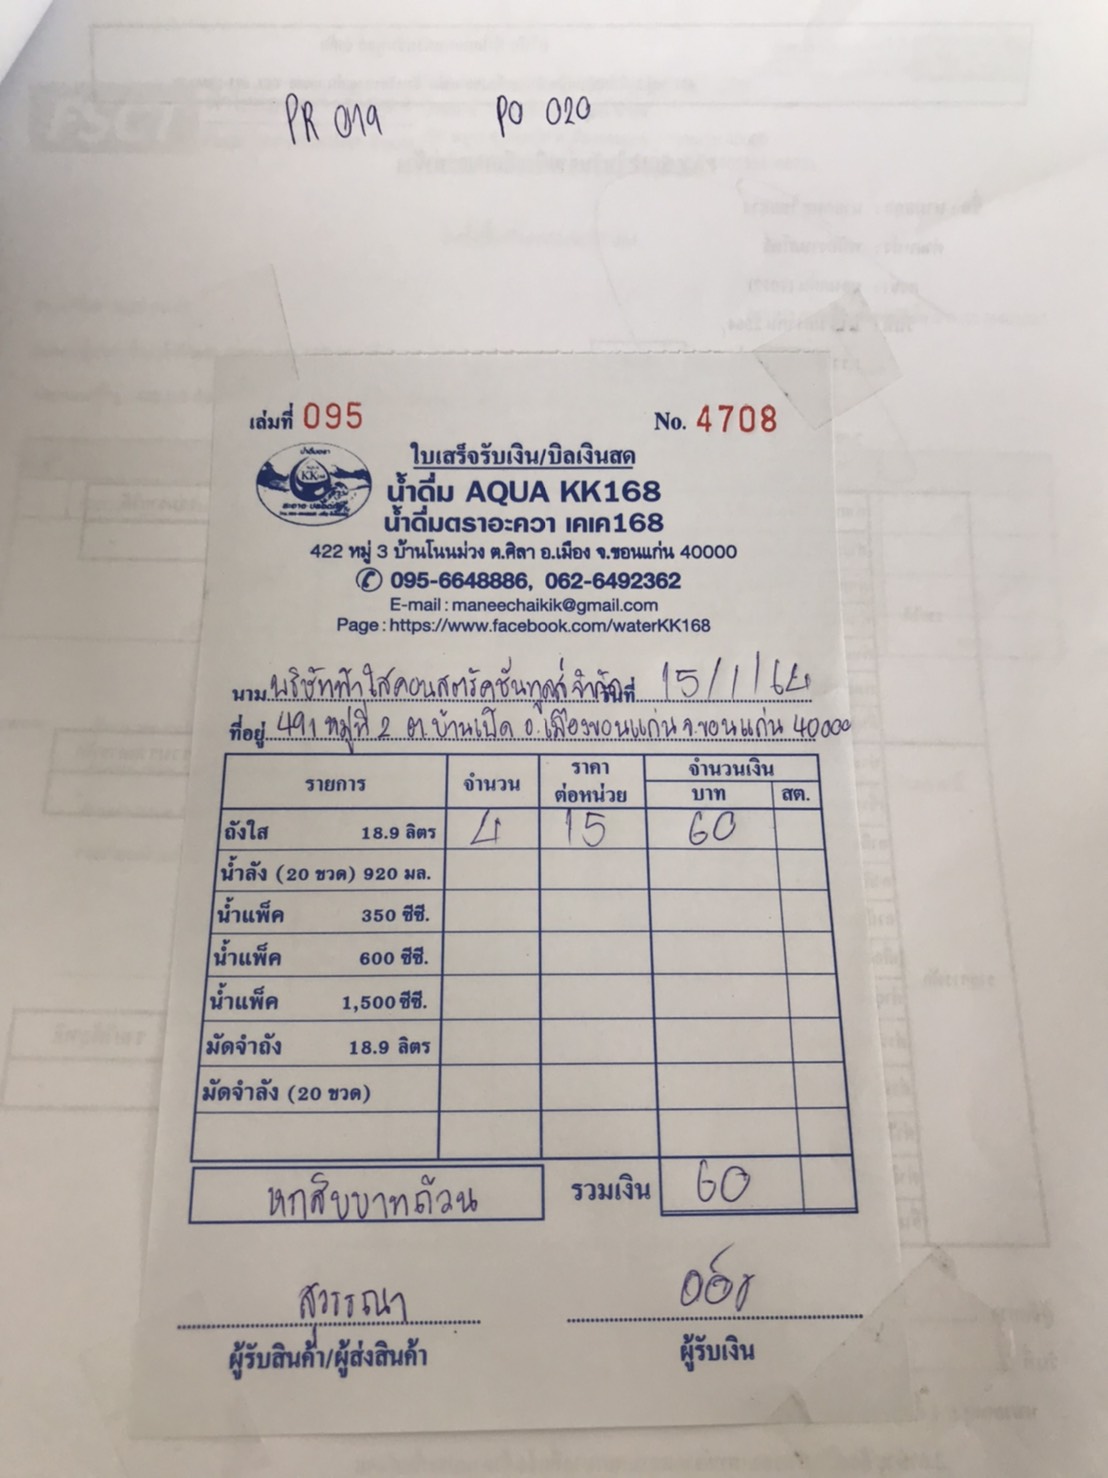 PR 019 PO 020
เล่มที่ 095 No. 4708
ใบเสร็จรับเงิน/บิลเงินสด
น้ำดื่ม AQUA KK168
น้ำดื่มตราอะควา เคเค168
422 หมู่ 3 บ้านโนนม่วง ต.ศิลา อ.เมือง จ.ขอนแก่น 40000
095-6648886, 062-6492362
E-mail : maneechaikik@gmail.com
Page : https://www.facebook.com/waterKK168
นาม บริษัทฟ้าใสคอนสตรัคชั่นทูลส์ จำกัด วันที่ 15/1/64
ที่อยู่ 491 หมู่ที่ 2 ต.บ้านเป็ด อ.เมืองขอนแก่น จ.ขอนแก่น 40000
รายการ จำนวน ราคา ต่อหน่วย จำนวนเงิน
บาท สต.
ถังใส 18.9 ลิตร 4 15 60
น้ำลัง (20 ขวด) 920 มล.
น้ำแพ็ค 350 ซีซี.
น้ำแพ็ค 600 ซีซี.
น้ำแพ็ค 1,500 ซีซี.
มัดจำถัง 18.9 ลิตร
มัดจำลัง (20 ขวด)
หกสิบบาทถ้วน รวมเงิน 60
สุวรรณา
ผู้รับสินค้า/ผู้ส่งสินค้า ผู้รับเงิน